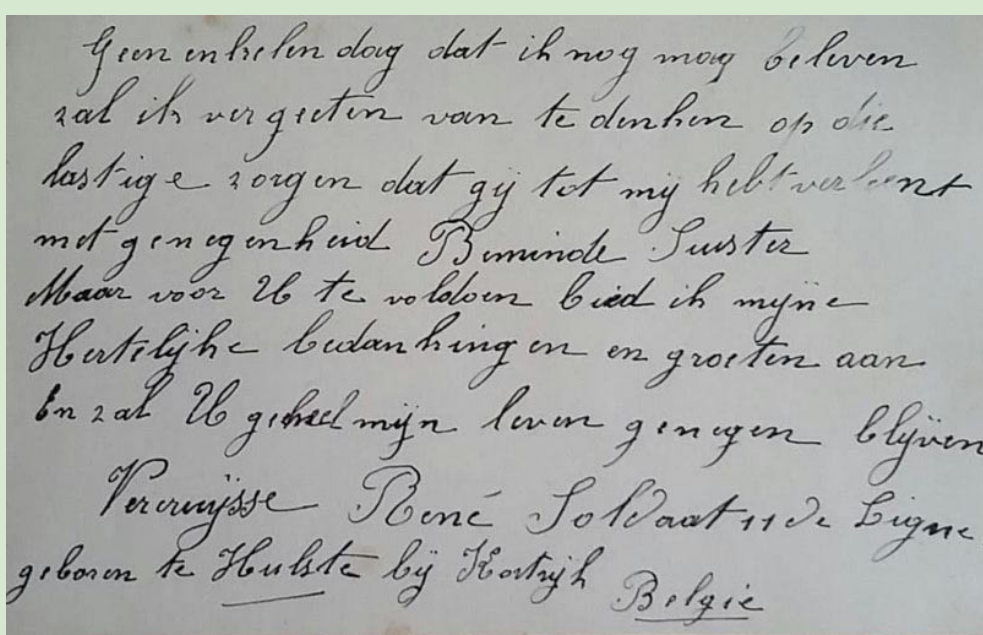 Geen enkelen dag dat ik nog mag beleven
zal ik vergeeten van te denken op die
lastige zorgen dat gij tot mij hebt verleent
met genegenheid Beminde Suster
Maar voor U te voldoen bied ik mijne
Hertelijke bedankingen en groeten aan
En zal U geheel mijn leven genegen blijven
Vercruÿsse René Soldaat 11de Ligne
geboren te Hulste bij Kortrijk
Belgie